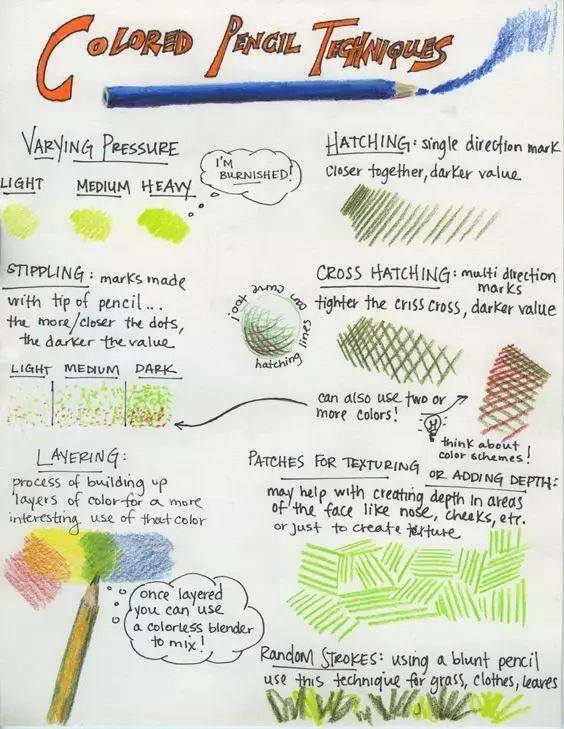 COLORED PENCIL TECHNIQUES
VARYING PRESSURE
LIGHT MEDIUM HEAVY
I'M
BURNISHED!
HATCHING: single direction mark
closer together, darker value
STIPPLING: marks made
with tip of pencil...
the more/closer the dots,
the darker the value
LIGHT MEDIUM DARK
hatching lines can curve too!
CROSS HATCHING: multi direction
marks
tighter the criss cross, darker value
can also use two or
more colors!
think about
color schemes!
LAYERING:
process of building up
layers of color for a more
interesting use of that color
once layered
you can use
a colorless blender
to mix!
PATCHES FOR TEXTURING OR ADDING DEPTH:
may help with creating depth in areas
of the face like nose, cheeks, etc.
or just to create texture
RANDOM STROKES: using a blunt pencil
use this technique for grass, clothes, leaves